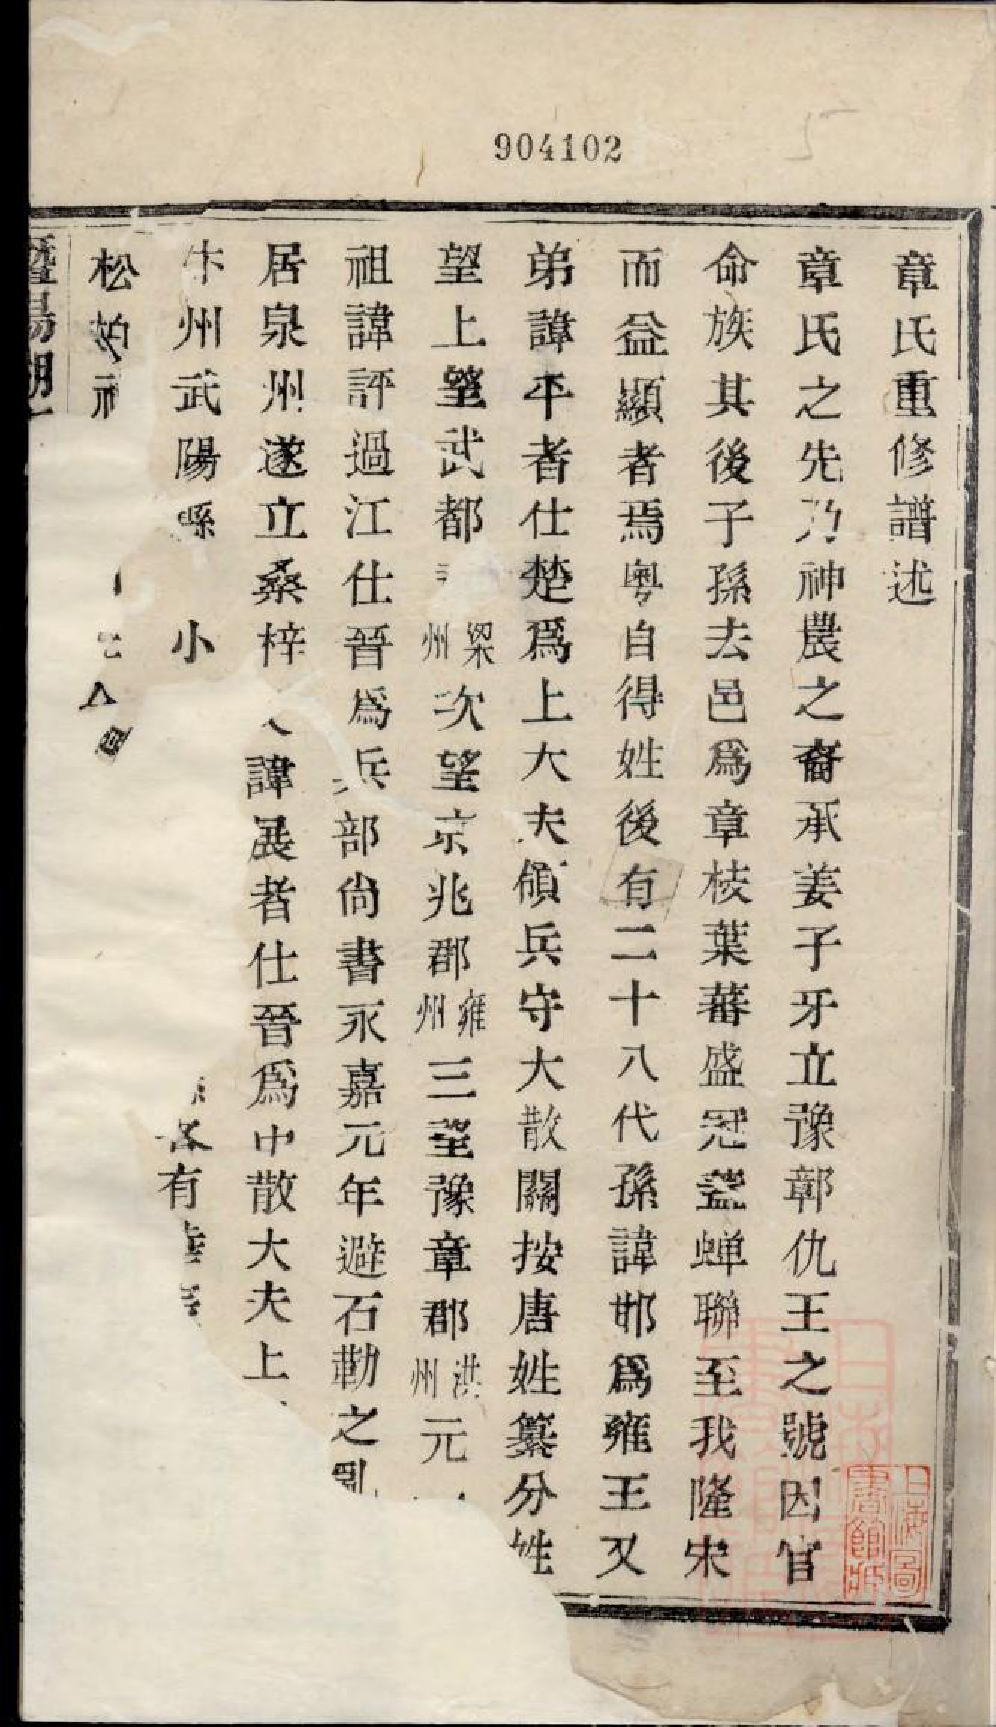 904102
章氏重修譜述
章氏之先乃神農之裔承姜子牙立豫鄣仇王之號因官
命族其後子孫去邑爲章枝葉蕃盛冠蓋蟬聯至我隆宋
而益顯者焉粵自得姓後有二十八代孫諱邯爲雍王又
弟諱平者仕楚爲上大夫領兵守大散關按唐姓纂分姓
望上望武都梁州次望京兆郡雍州三望豫章郡洪州元
祖諱評過江仕晉爲兵部尚書永嘉元年避石勒之亂
居泉州遂立桑梓諱展者仕晉爲中散大夫上
州武陽縣小有
松柏
暨陽湖
上海圖書館藏